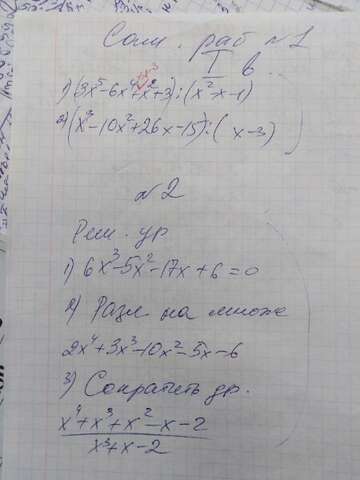 Сам. раб №1
I в.
1) (3x⁵-6x⁴+x²+3):(x²-x-1)
2) (x³-10x²+26x-15):(x-3)
№2
Реш. ур
1) 6x³-5x²-17x+6=0
2) Разл на множе
2x⁴+3x³-10x²-5x-6
3) Сократить др.
x⁴+x³+x²-x-2
x³+x-2